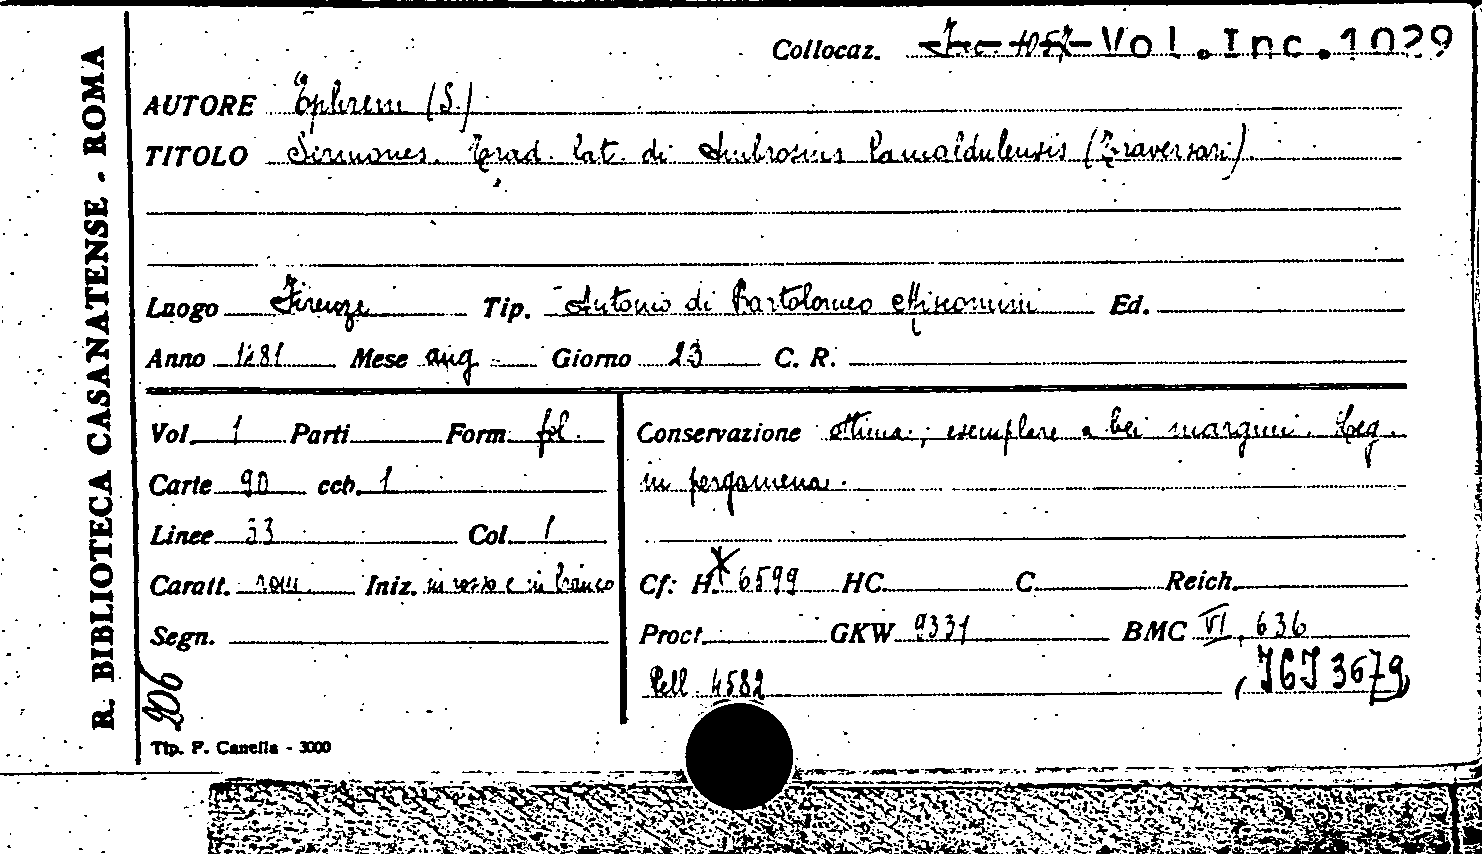 R. BIBLIOTECA CASANATENSE - ROMA
Collocaz. Inc. 1057 Vol.Inc.1029
AUTORE Ephrem (S.)
TITOLO Sermones. Trad. lat. di Ambrosius Camaldulensis (Traversari).
Luogo Firenze Tip. Antonio di Bartolomeo Miscomini Ed.
Anno 1481 Mese aug. Giorno 23 C. R.
Vol. 1 Parti Form. fol.
Carte 90 ccb. 1
Linee 33 Col. 1
Caratt. rom. Iniz. in rosso e in bianco
Segn.
206
Tip. P. Canella - 3000
Conservazione ottima; esemplare a bei margini. Leg.
in pergamena.
Cf: H.* 6599 HC. C. Reich.
Proct. GKW 9331 BMC VI, 636
Pell. 4582 (IGI 3679)